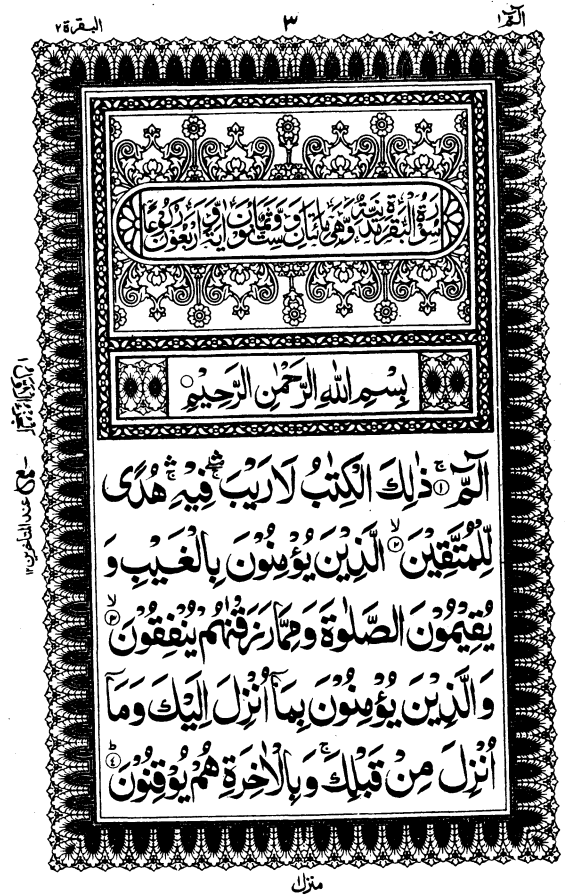 الٓمّٓ ١
٣
البقرة ٢
سُوْرَةُ الْبَقَرَةِ مَدَنِيَّةٌ وَّهِيَ مِائَتَانِ وَسِتٌّ وَّثَمَانُوْنَ اٰيَةً وَّاَرْبَعُوْنَ رُكُوْعًا
بِسْمِ اللّٰهِ الرَّحْمٰنِ الرَّحِيْمِ ○
الٓمّٓ ۚ ﴿۱﴾ ذٰلِكَ الْكِتٰبُ لَا رَيْبَ ۛۖ فِيْهِ ۛۚ هُدًى
لِّلْمُتَّقِيْنَ ۙ﴿۲﴾ الَّذِيْنَ يُؤْمِنُوْنَ بِالْغَيْبِ وَ
يُقِيْمُوْنَ الصَّلٰوةَ وَمِمَّا رَزَقْنٰهُمْ يُنْفِقُوْنَ ۙ﴿۳﴾
وَالَّذِيْنَ يُؤْمِنُوْنَ بِمَآ اُنْزِلَ اِلَيْكَ وَمَآ
اُنْزِلَ مِنْ قَبْلِكَ ۚ وَبِالْاٰخِرَةِ هُمْ يُوْقِنُوْنَ ؕ﴿۴﴾
منزل ١